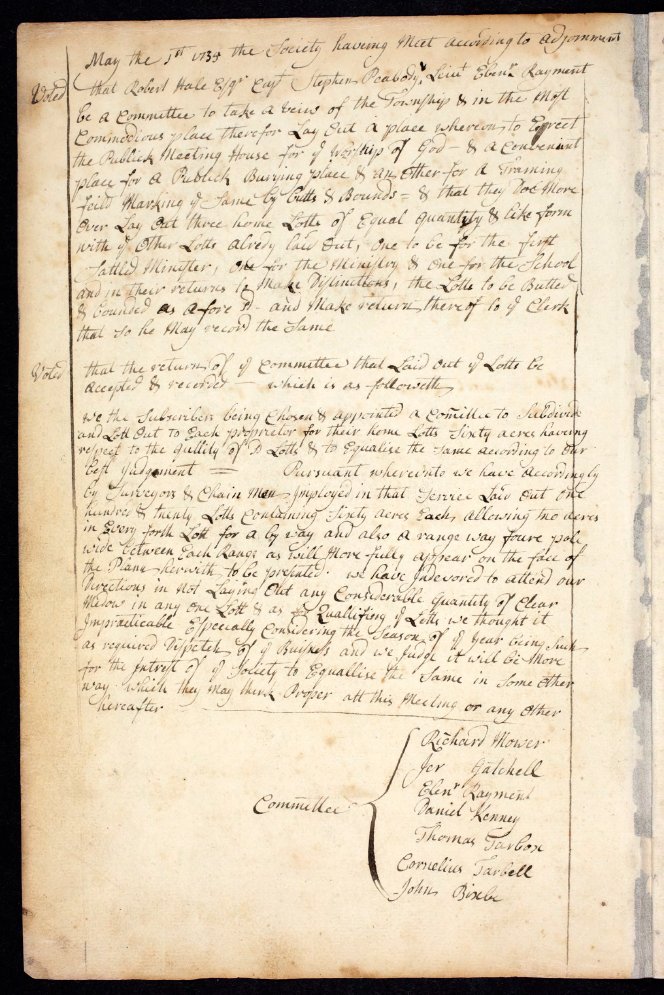 May the 1st 1735 the Society haveing Meet according to adjornment
Voted that Robert Hale Esqr Capt Stephen Peabody, Lieut Ebenr Rayment
be a Committee to take a veiw of the Township & in the Most
Commodious place therefor Lay Out a place whereon to Errect
the Publick Meeting House for ye worship of God - & a Convenient
place for a Publick Burying place & an Other for a Training
feild Marking ye Same by butts & Bounds = & that they Doe More
Over Lay Out three home Lotts of Equal quantity & like form
with ye Other Lotts alredy laid Out, One to be for the first
Sattled Minister, One for the Ministry & One for the School
and in their returns to Make Distinctions, the Lotts to be Butted
& bounded as afore Sd - and Make return thereof to ye Clerk
that so he May record the Same
Voted that the return of ye Committee that Laid out ye Lotts be
accepted & recorded - which is as followeth
we the Subscribers being Chosen & appointed a Comittee to Subdivid
and Lott Out to Each proprietor for their home Lotts Sixty acres haveing
respect to the qullity of Sd Lotts & to Equalise the same according to Our
best Judgement = Pursuant whereunto we have accordingly
by Surveyors & Chain Men Imployed in that Service Laid Out One
hundred & twenty Lotts Containing Sixty acres Each, allowing two acres
in Every forth Lott for a by way and also a range way foure pole
wide between Each Range as will More fully appear on the face of
the Plann herwith to be presented. we have Indevored to attend our
Directions in Not Laying Out any Considerable Quantity of Clear
Medow in any One Lott & as to Quallifing ye Lotts we thought it
Impracticable Especially Considering the Season of ye year being Such
as required Dispatch of ye Buisness and we Judge it will be More
for the Intrest of ye Society to Equallise the Same in Some Other
way which they May think Proper att this Meeting or any Other
hereafter
Committee
Richard Mower
Jer Gatchell
Ebenr Rayment
Daniel Kenney
Thomas Tarbox
Cornelius Tarbell
John Bixbe